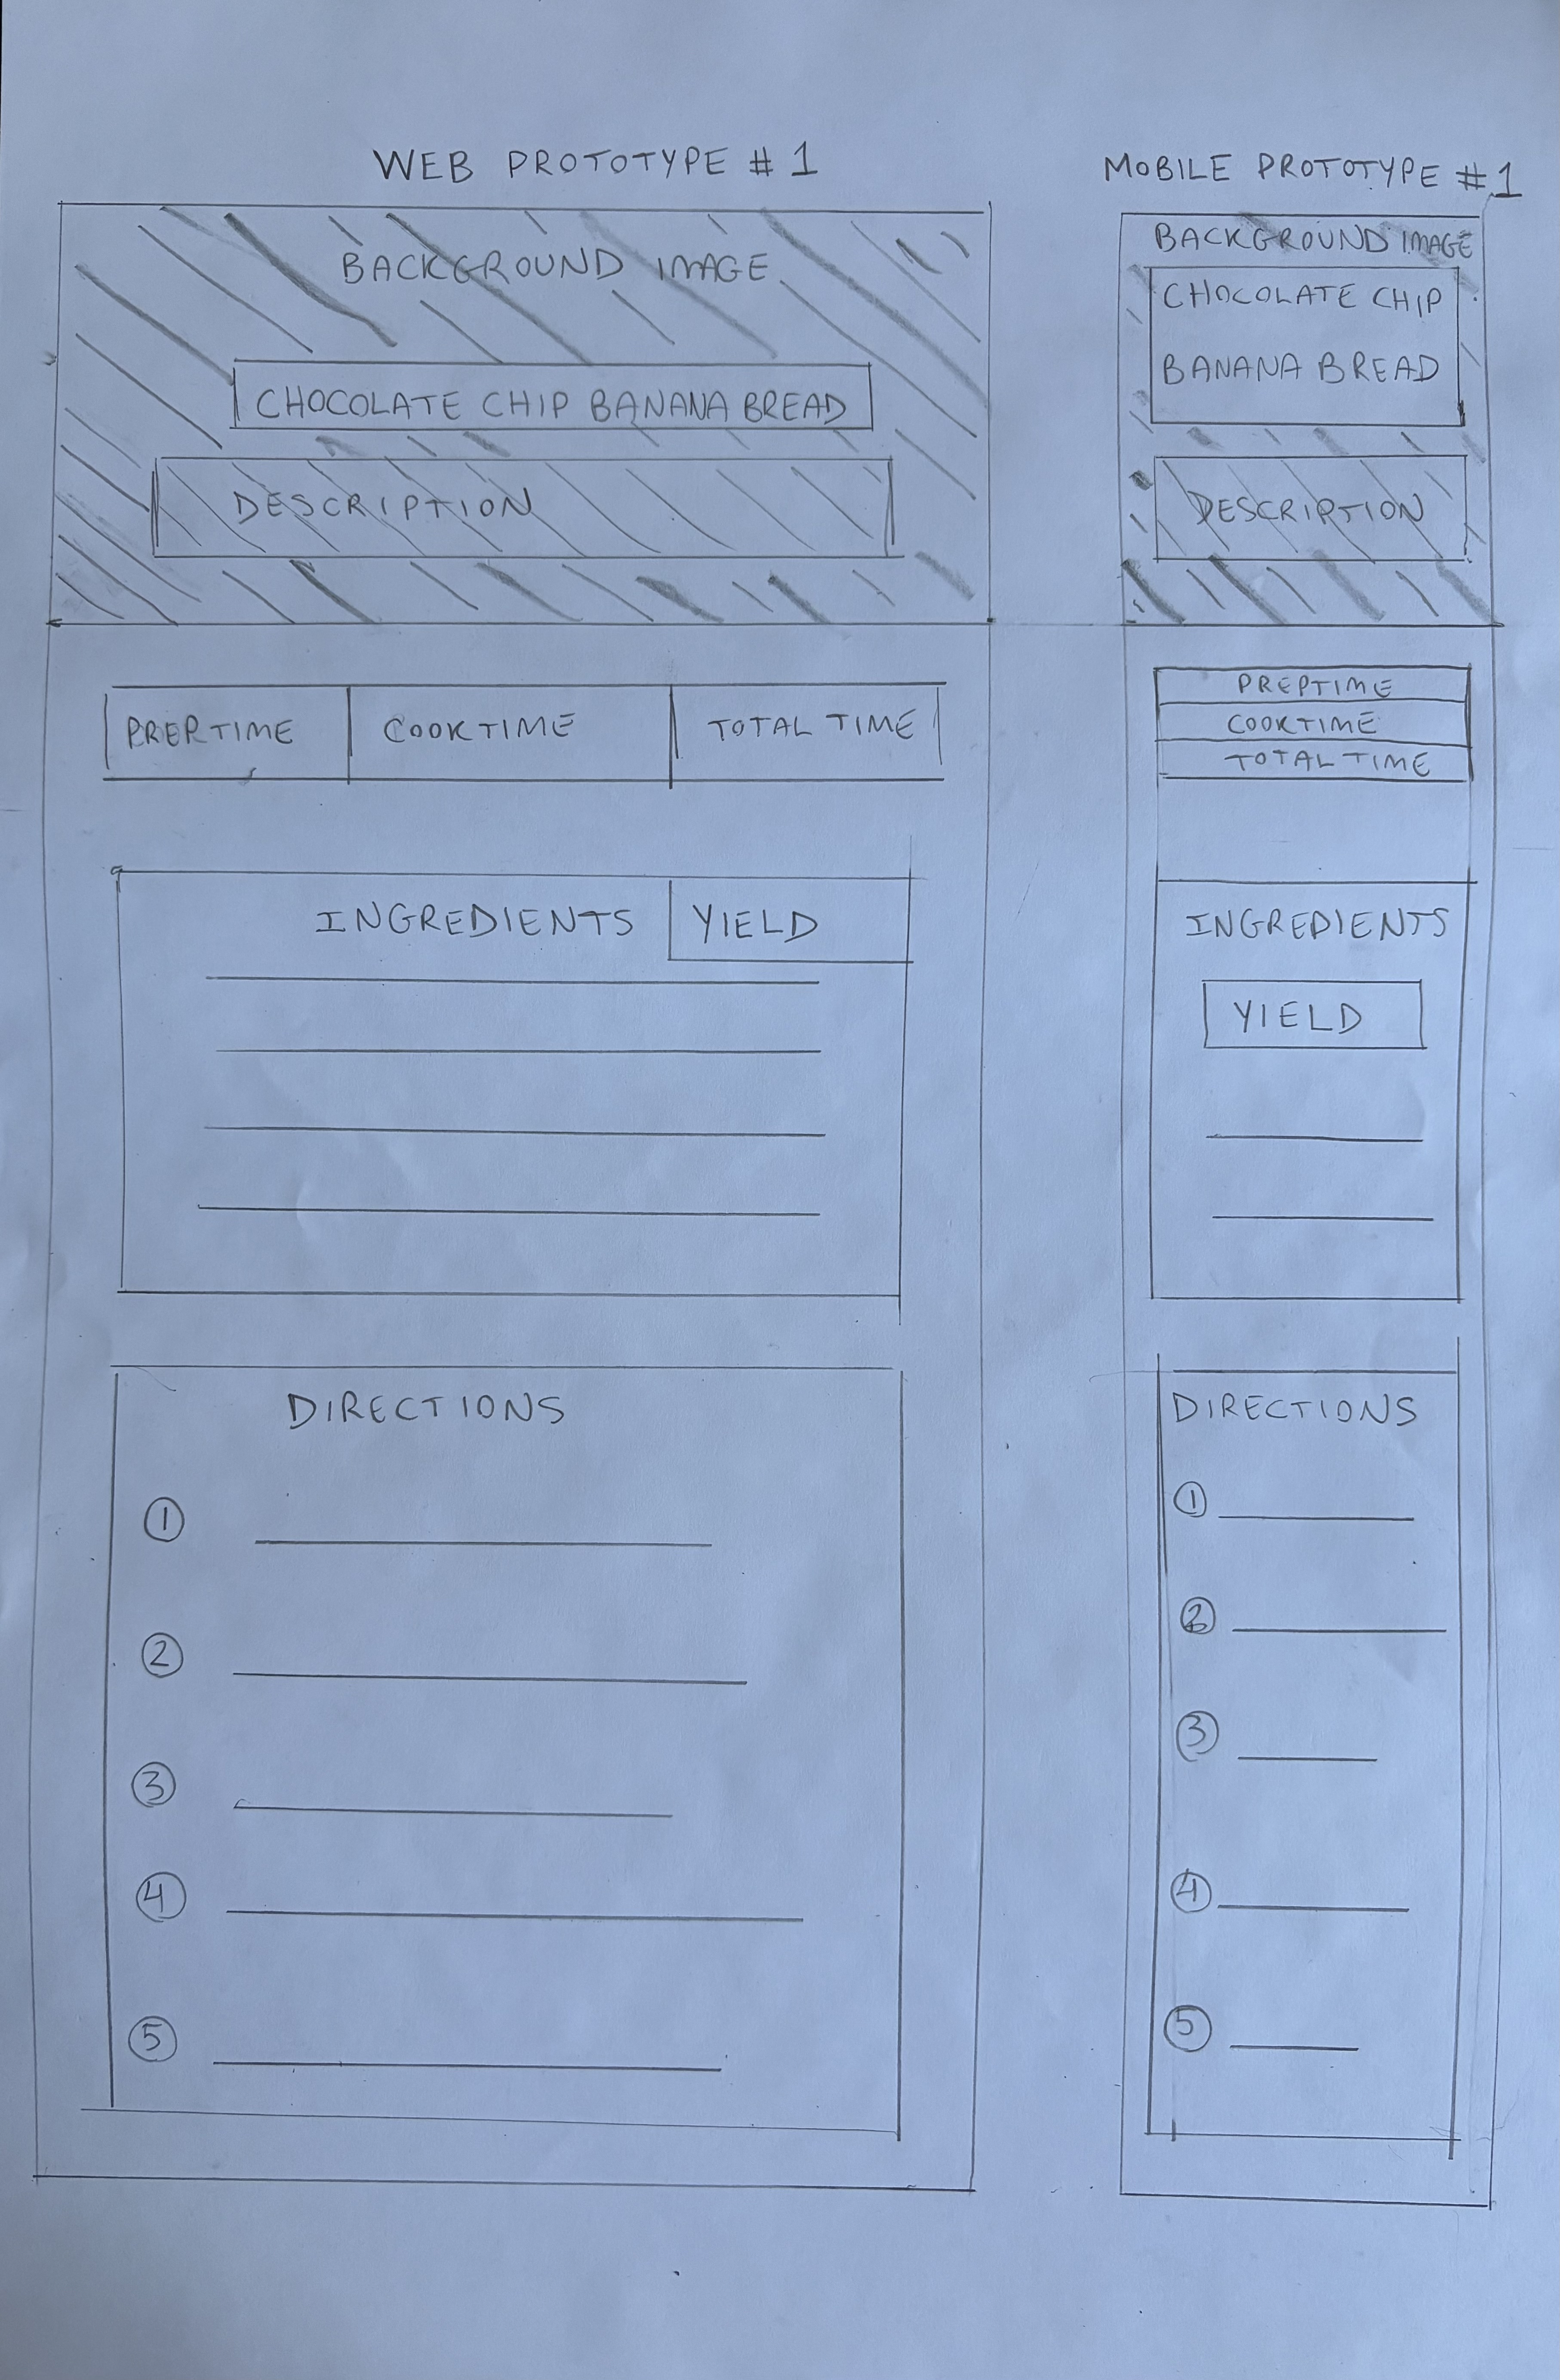 WEB PROTOTYPE #1
BACKGROUND IMAGE
CHOCOLATE CHIP BANANA BREAD
DESCRIPTION
PREPTIME
COOKTIME
TOTAL TIME
INGREDIENTS
YIELD
DIRECTIONS
1
2
3
4
5
MOBILE PROTOTYPE #1
BACKGROUND IMAGE
CHOCOLATE CHIP
BANANA BREAD
DESCRIPTION
PREPTIME
COOKTIME
TOTAL TIME
INGREDIENTS
YIELD
DIRECTIONS
1
2
3
4
5